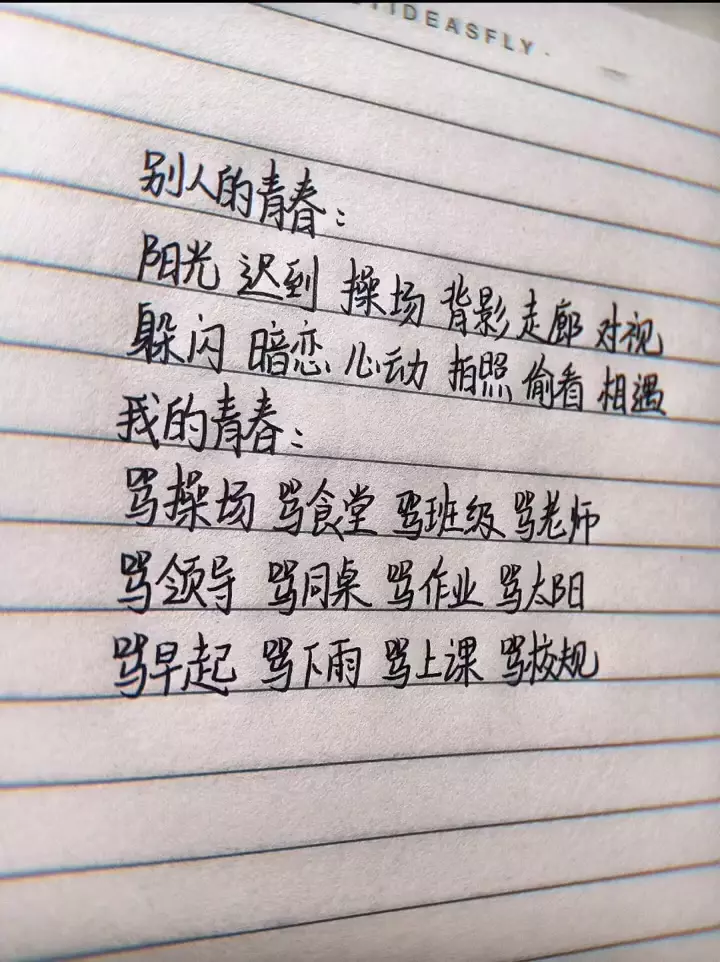 IDEASFLY
别人的青春：
阳光 迟到 操场 背影 走廊 对视
躲闪 暗恋 心动 拍照 偷看 相遇
我的青春：
骂操场 骂食堂 骂班级 骂老师
骂领导 骂同桌 骂作业 骂太阳
骂早起 骂下雨 骂上课 骂校规